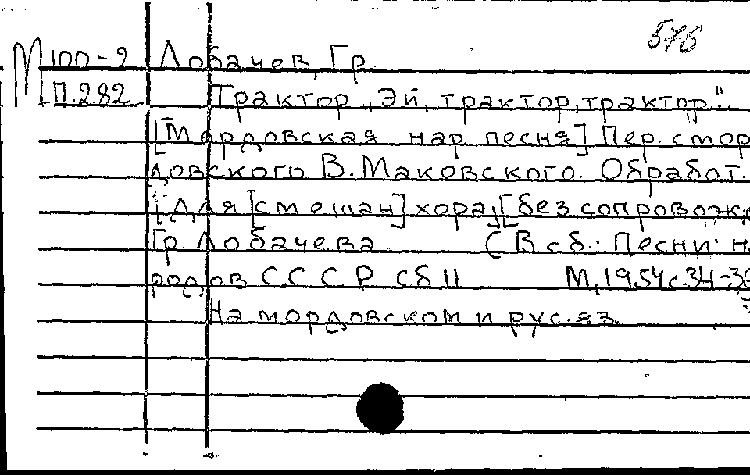 М 100-9 Лобачев, Гр.
П.282 Трактор „Эй, трактор, трактор".
[Мордовская нар. песня] Пер. с мор
довского В. Маковского. Обработ.
[для [смешан] хора] [без сопровожд
Гр. Лобачева (В сб.: Песни на
родов СССР Сб II М, 1954 с. 34-
На мордовском и рус. яз.